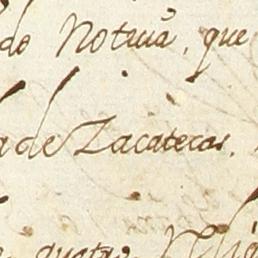 do Noticia, que
de Zacatecas.
quatro